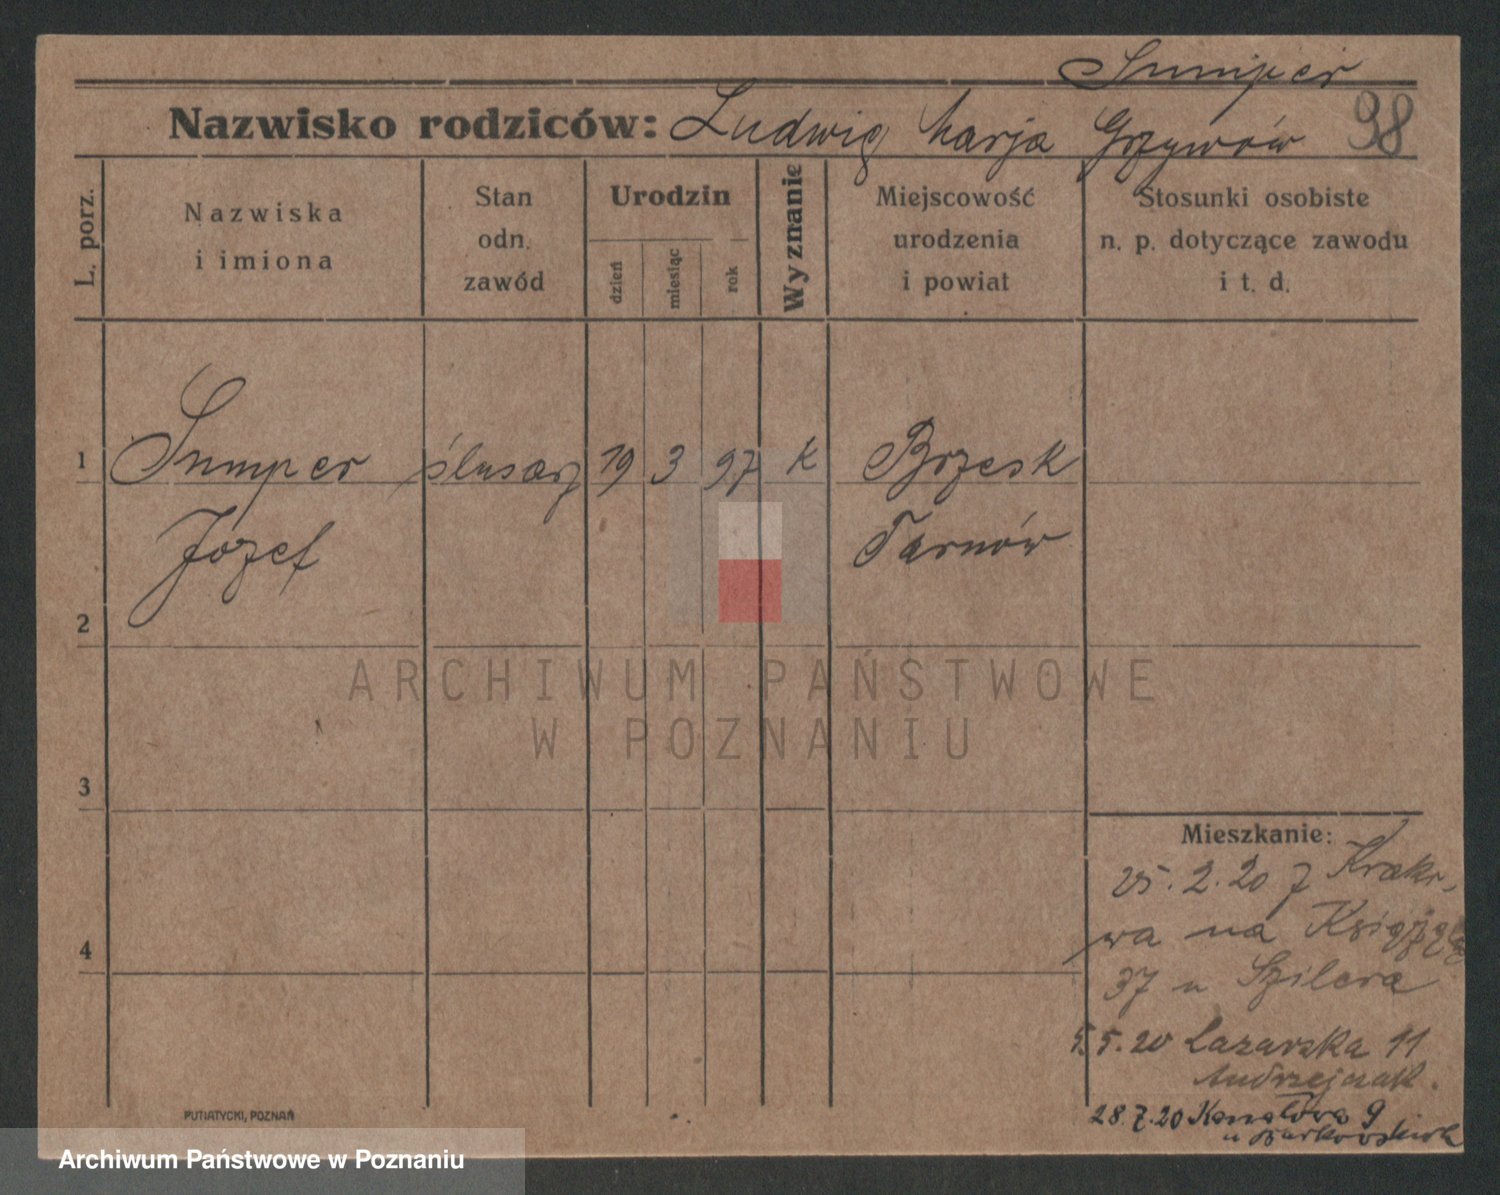 Sumper
Nazwisko rodziców: Ludwig Marja Grzywów 98
L. porz.
Nazwiska
i imiona
Stan
odn.
zawód
Urodzin
dzień
miesiąc
rok
Wyznanie
Miejscowość
urodzenia
i powiat
Stosunki osobiste
n. p. dotyczące zawodu
i t. d.
1 Sumper ślusarz 19 3 97 K Brzesk
Józef Tarnów
2
ARCHIWUM PAŃSTWOWE
W POZNANIU
3
Mieszkanie:
25.2.20 z Krako-
wa na
4
37 u Szilera
5.5.20 Lazarska 11
Andrzejczak.
28.7.20 Kanałowa 9
PUTIATYCKI, POZNAŃ
Archiwum Państwowe w Poznaniu